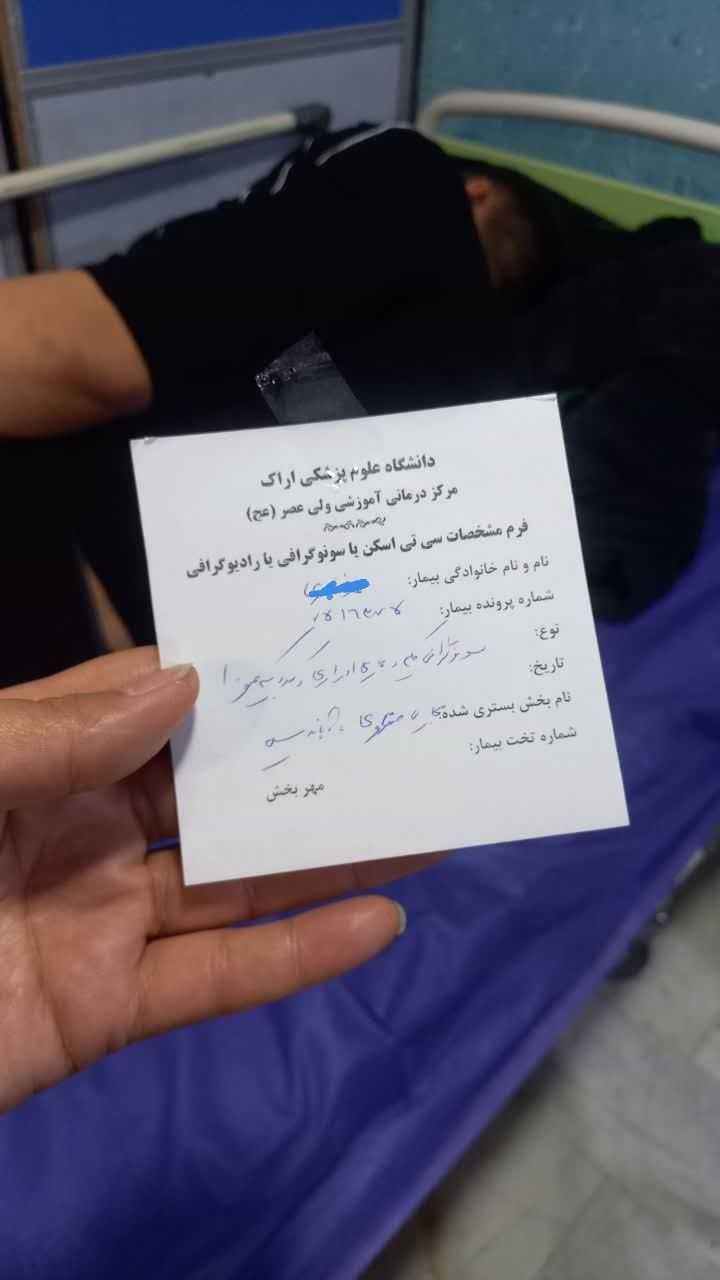 دانشگاه علوم پزشکی اراک
مرکز درمانی آموزشی ولی عصر (عج)
فرم مشخصات سی تی اسکن یا سونوگرافی یا رادیوگرافی
نام و نام خانوادگی بیمار:
شماره پرونده بیمار:
نوع: سونوگرافی کلیه و مجاری ادراری
تاریخ:
نام بخش بستری شده:
شماره تخت بیمار:
مهر بخش